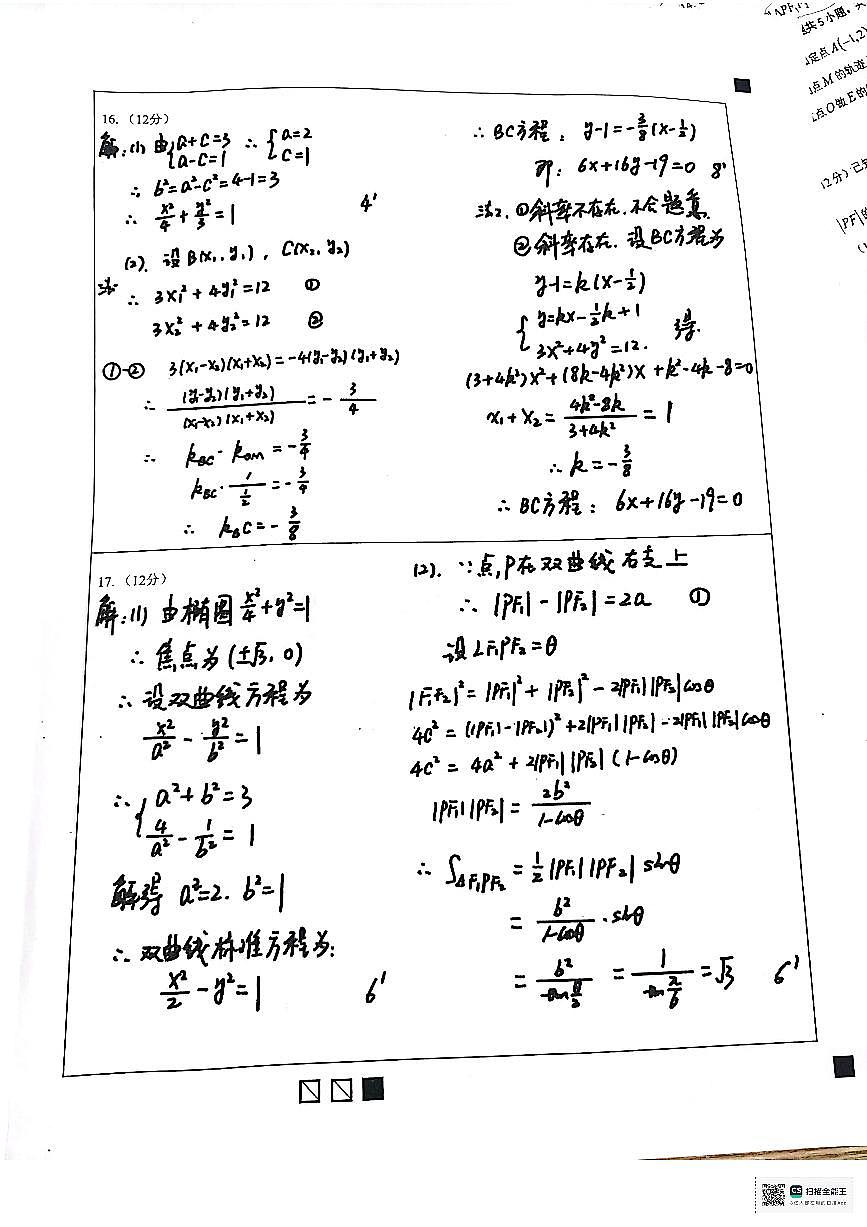 共5小题,
定点A(-1,2)
点M的轨迹
点O做E的
12分)已
|PF|的
16. (12分)
解:(1) 由{a+c=3 ∴ {a=2
a-c=1 c=1
∴ b²=a²-c²=4-1=3
∴ x²/4 + y²/3 = 1 4'
(2). 设B(x₁,y₁), C(x₂,y₂)
法一 ∴ 3x₁²+4y₁²=12 ①
3x₂²+4y₂²=12 ②
①-② 3(x₁-x₂)(x₁+x₂)=-4(y₁-y₂)(y₁+y₂)
∴ (y₁-y₂)(y₁+y₂)/(x₁-x₂)(x₁+x₂) = -3/4
∴ k_BC·k_OM = -3/4
k_BC·1/(1/2) = -3/4
∴ k_BC = -3/8
∴ BC方程: y-1=-3/8(x-1/2)
即: 6x+16y-19=0 8'
法2. ①斜率不存在.不合题意.
②斜率存在. 设BC方程为
y-1=k(x-1/2)
{y=kx-1/2k+1
3x²+4y²=12. 得.
(3+4k²)x²+(8k-4k²)x+k²-4k-8=0
x₁+x₂ = (4k²-8k)/(3+4k²) = 1
∴ k=-3/8
∴ BC方程: 6x+16y-19=0
17. (12分)
解:(1) 由椭圆 x²/4+y²=1
∴ 焦点为(±√3,0)
∴ 设双曲线方程为
x²/a² - y²/b² = 1
∴ {a²+b²=3
4/a² - 1/b² = 1
解得 a²=2. b²=1
∴ 双曲线标准方程为:
x²/2 - y² = 1 6'
(2). ∵点P在双曲线右支上
∴ |PF₁|-|PF₂|=2a ①
设∠F₁PF₂=θ
|F₁F₂|²=|PF₁|²+|PF₂|²-2|PF₁||PF₂|cosθ
4c²=(|PF₁|-|PF₂|)²+2|PF₁||PF₂|-2|PF₁||PF₂|cosθ
4c²=4a²+2|PF₁||PF₂|(1-cosθ)
|PF₁||PF₂|=2b²/(1-cosθ)
∴ S△F₁PF₂=1/2|PF₁||PF₂|sinθ
= b²/(1-cosθ)·sinθ
= b²/tan(θ/2) = 1/tan(π/6) = √3 6'
CS 扫描全能王